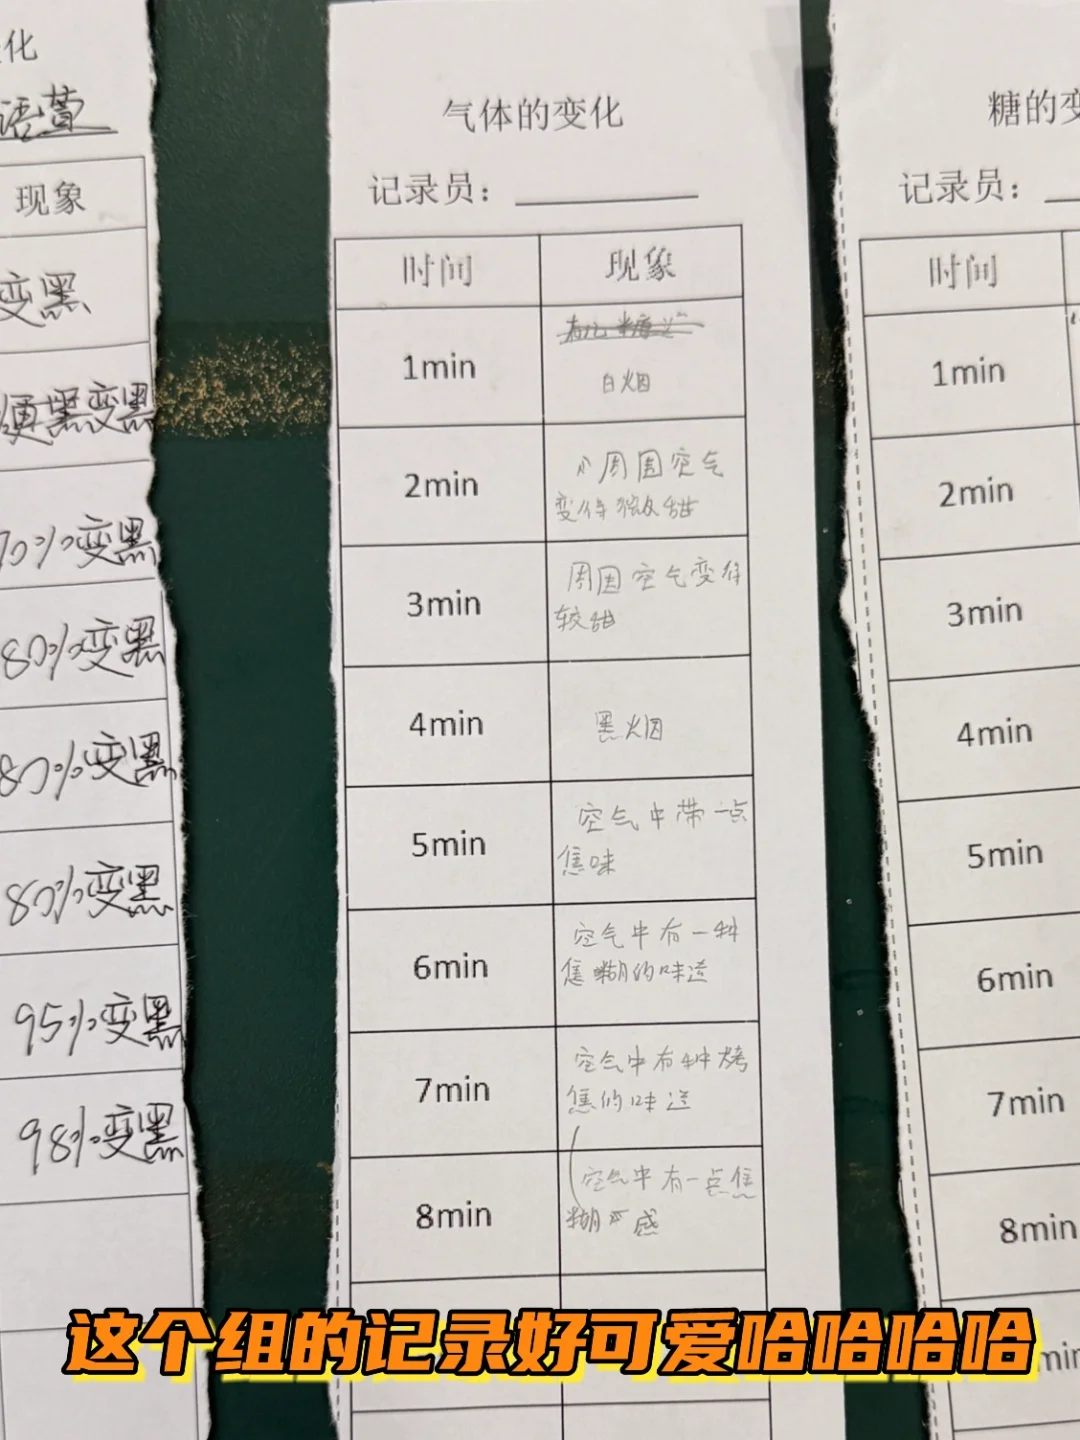 化
语萱
现象
变黑
变黑
70%变黑
80%变黑
80%变黑
80%变黑
95%变黑
98%变黑
气体的变化
记录员：
时间
现象
1min
白烟
2min
周围空气
变得微甜
3min
周围空气变得
较甜
4min
黑烟
5min
空气中带一点
焦味
6min
空气中有一种
焦糊的味道
7min
空气中有种烤
焦的味道
8min
空气中有一点焦
糊 感
糖的变
记录员：
时间
1min
2min
3min
4min
5min
6min
7min
8min
min
这个组的记录好可爱哈哈哈哈